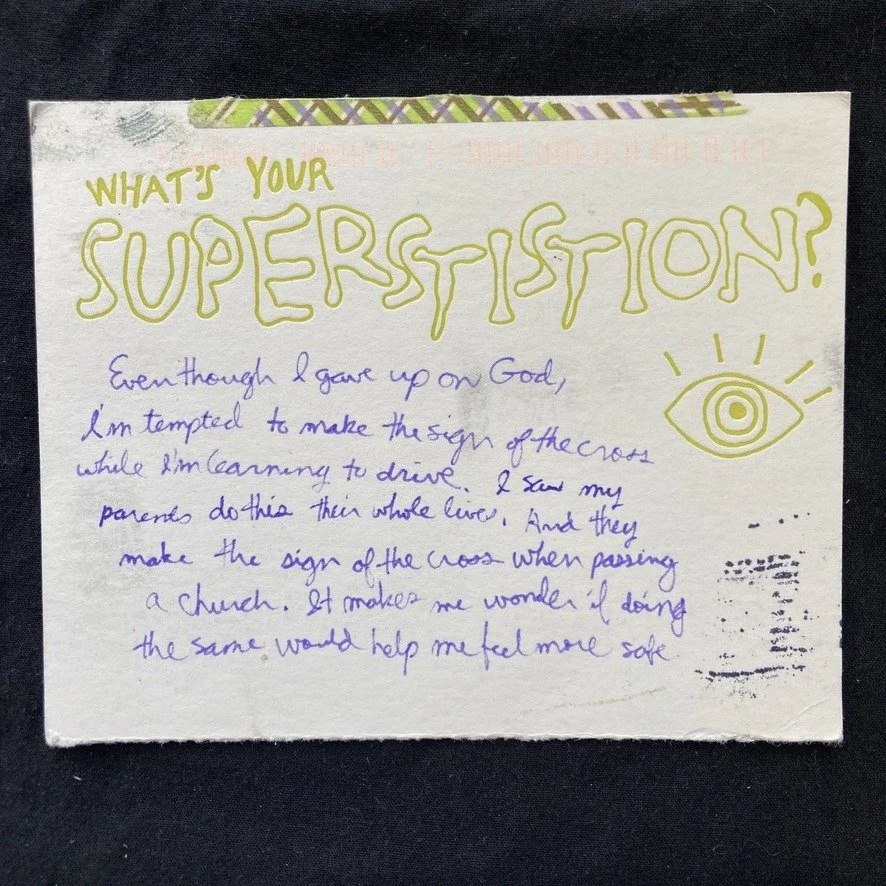 WHAT'S YOUR
SUPERSTISTION?
Even though I gave up on God,
I'm tempted to make the sign of the cross
while I'm learning to drive. I saw my
parents do this their whole lives. And they
make the sign of the cross when passing
a church. It makes me wonder if doing
the same would help me feel more safe